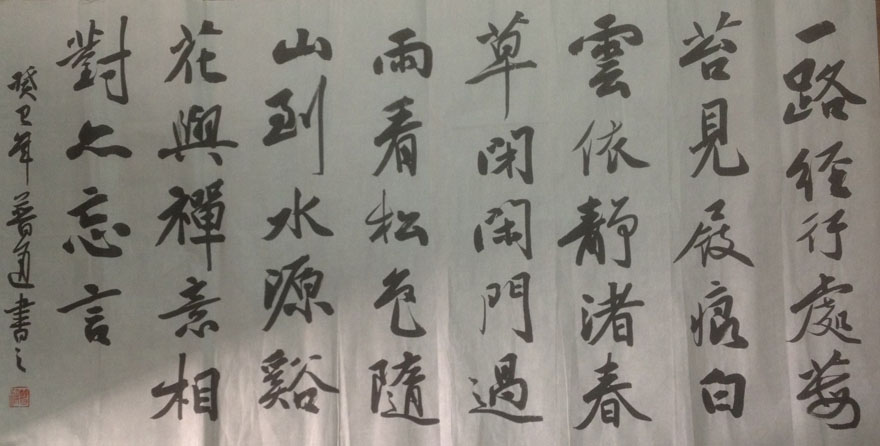 一路經行處莓
苔見屐痕白
雲依靜渚春
草閉閑門過
雨看松色隨
山到水源谿
花與禪意相
對亦忘言
癸巳年普通書之